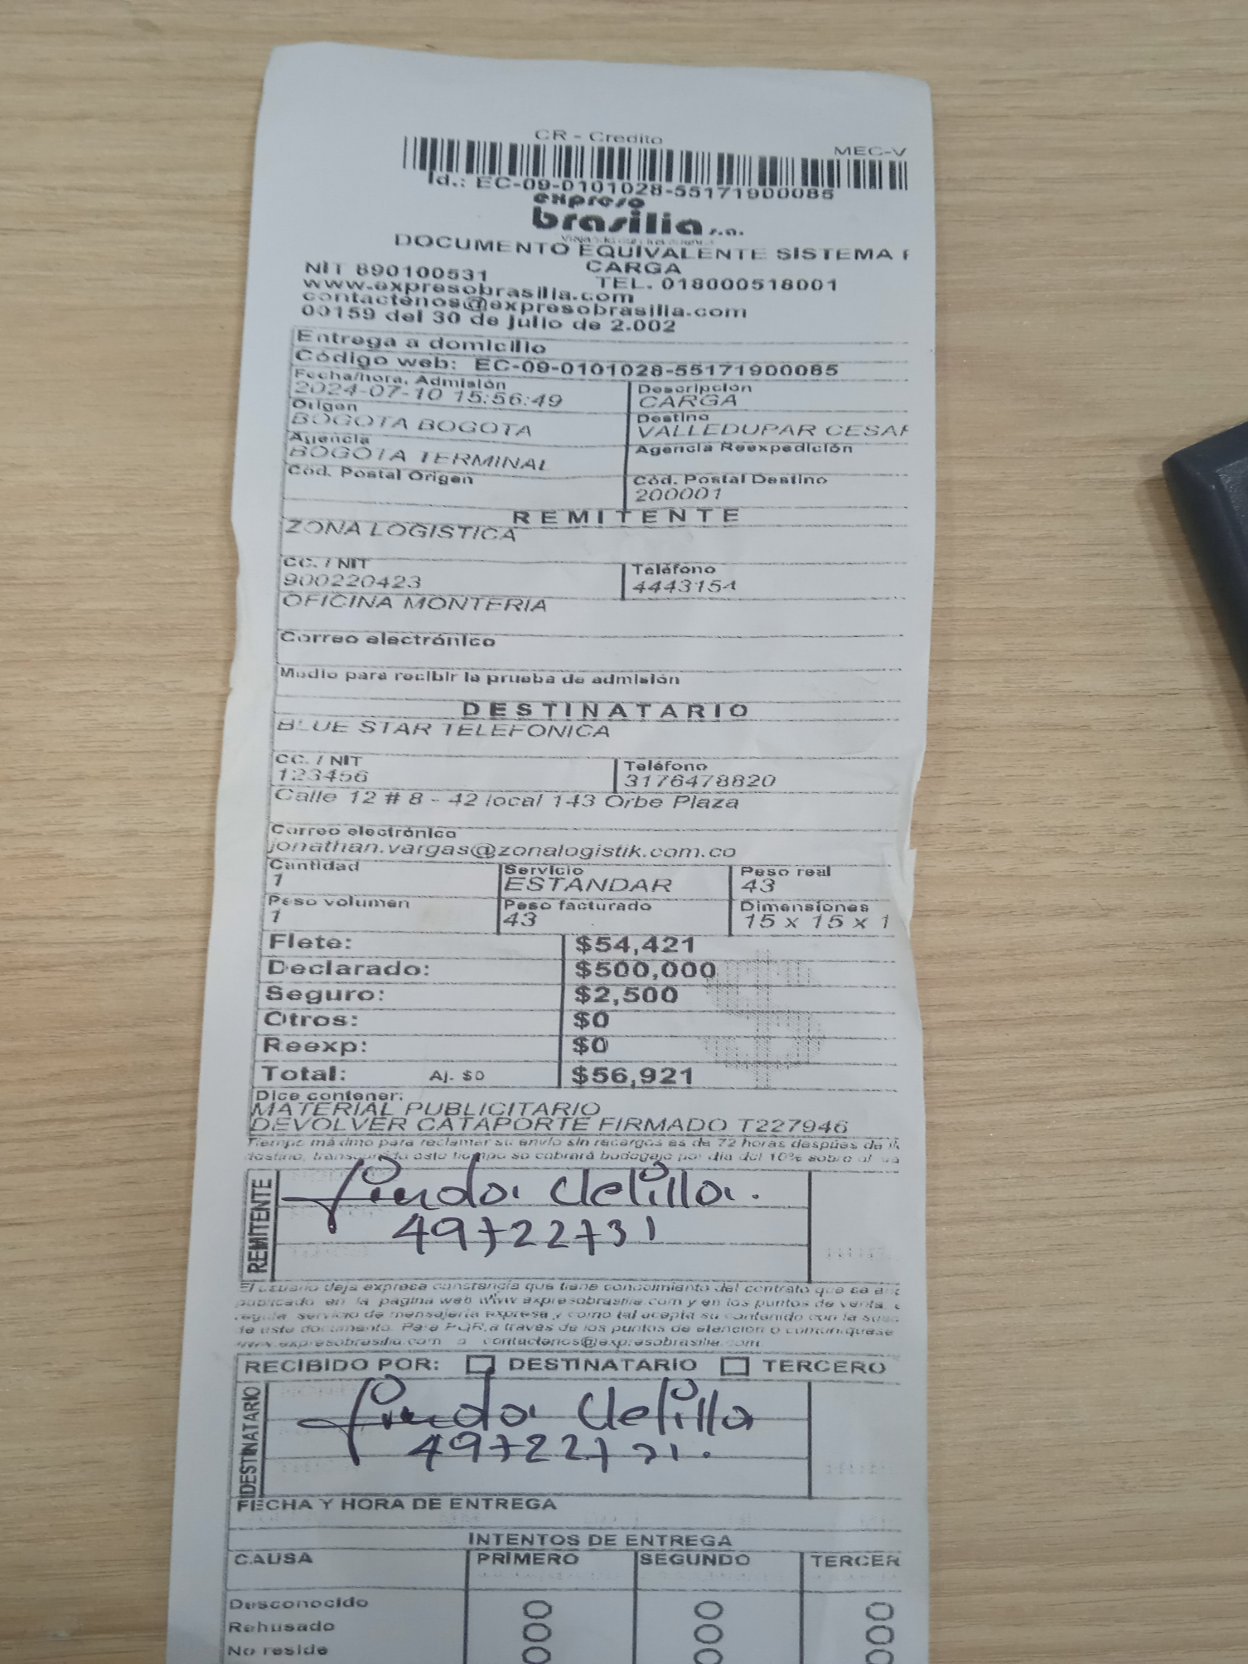 CR - Credito
MEC-V
Id.: EC-09-0101028-55171900085
expreso
brasilia s.a.
DOCUMENTO EQUIVALENTE SISTEMA
CARGA
NIT 890100531 TEL. 018000518001
www.expresobrasilia.com
contactenos@expresobrasilia.com
00159 del 30 de julio de 2.002
Entrega a domicilio
Código web: EC-09-0101028-55171900085
Fecha/hora, Admisión Descripción
2024-07-10 15:56:49 CARGA
Origen Destino
BOGOTA BOGOTA VALLEDUPAR CESAR
Agencia Agencia Reexpedición
BOGOTA TERMINAL
Cód. Postal Origen Cód. Postal Destino
200001
REMITENTE
ZONA LOGISTICA
CC. / NIT Teléfono
900220423 4443154
OFICINA MONTERIA
Correo electrónico
Medio para recibir la prueba de admisión
DESTINATARIO
BLUE STAR TELEFONICA
CC. / NIT Teléfono
123456 3176478820
Calle 12 # 8 - 42 local 143 Orbe Plaza
Correo electrónico
jonathan.vargas@zonalogistik.com.co
Cantidad Servicio Peso real
1 ESTANDAR 43
Peso volumen Peso facturado Dimensiones
1 43 15 x 15 x 1
Flete: $54,421
Declarado: $500,000
Seguro: $2,500
Otros: $0
Reexp: $0
Total: Aj. $0 $56,921
Dice contener:
MATERIAL PUBLICITARIO
DEVOLVER CATAPORTE FIRMADO T227946
Tiempo máximo para reclamar su envío sin recargos es de 72 horas después de
destino, transcurrido este tiempo se cobrará bodegaje por día del 10% sobre el
REMITENTE
49722731
El usuario deja expresa constancia que tiene conocimiento del contrato que se
publicado en la página web www.expresobrasilia.com y en los puntos de venta,
regula servicio de mensajería expresa y como tal acepta su contenido con la
de este documento. Para PQR a través de los puntos de atención o comuníquese
www.expresobrasilia.com o contactenos@expresobrasilia.com
RECIBIDO POR: DESTINATARIO TERCERO
DESTINATARIO
FECHA Y HORA DE ENTREGA
INTENTOS DE ENTREGA
CAUSA PRIMERO SEGUNDO TERCER
Desconocido
Rehusado
No reside